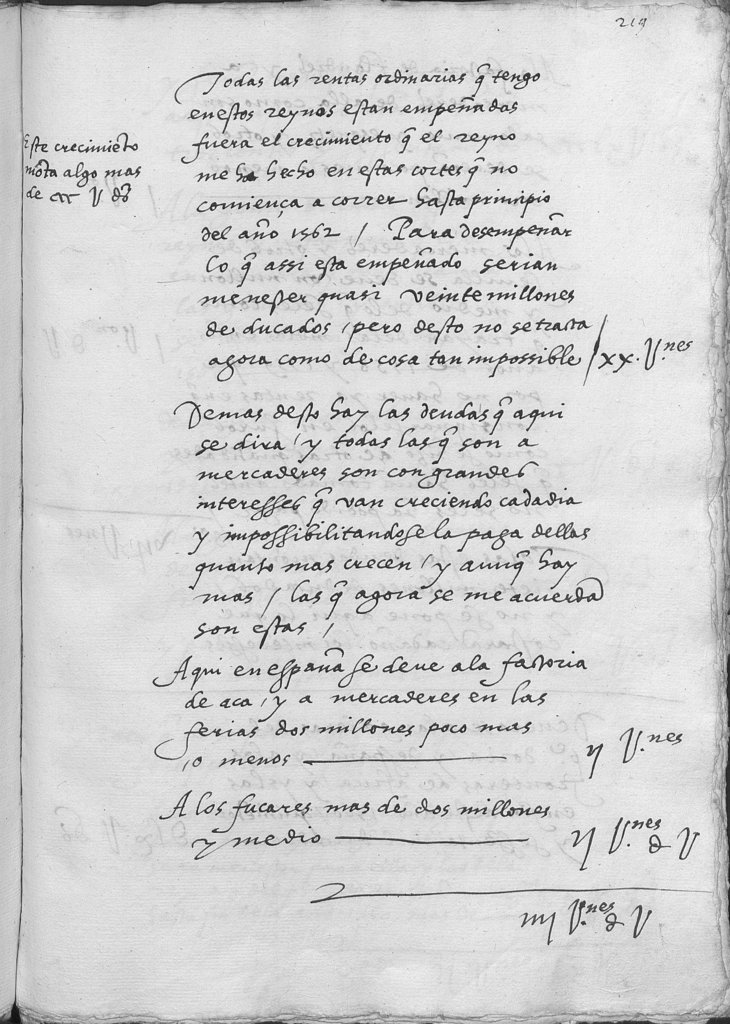 219
Todas las rentas ordinarias q̃ tengo
en estos reynos estan empeñadas
fuera el crecimiento q̃ el reyno
me ha hecho en estas cortes q̃ no
comiença a correr hasta principio
del año, 1562 / Para desempeñar
lo q̃ assi esta empeñado serian
menester quasi veinte millones
de ducados, pero desto no se trata
agora como de cosa tan impossible / xx. U.nes
Este crecimiẽto
mõta algo mas
de cc U dos
Demas desto hay las deudas q̃ aqui
se dira, y todas las q̃ son a
mercaderes son con grandes
interesses q̃ van creciendo cada dia
y impossibilitandose la paga dellas
quanto mas crecen, y aunq̃ hay
mas, las q̃ agora se me acuerda
son estas,
Aqui en españa se deve a la factoria
de aca, y a mercaderes en las
ferias dos millones poco mas
o menos — ij U.nes
A los fucares mas de dos millones
y medio — ij U.nes d U
iiij U.nes d U